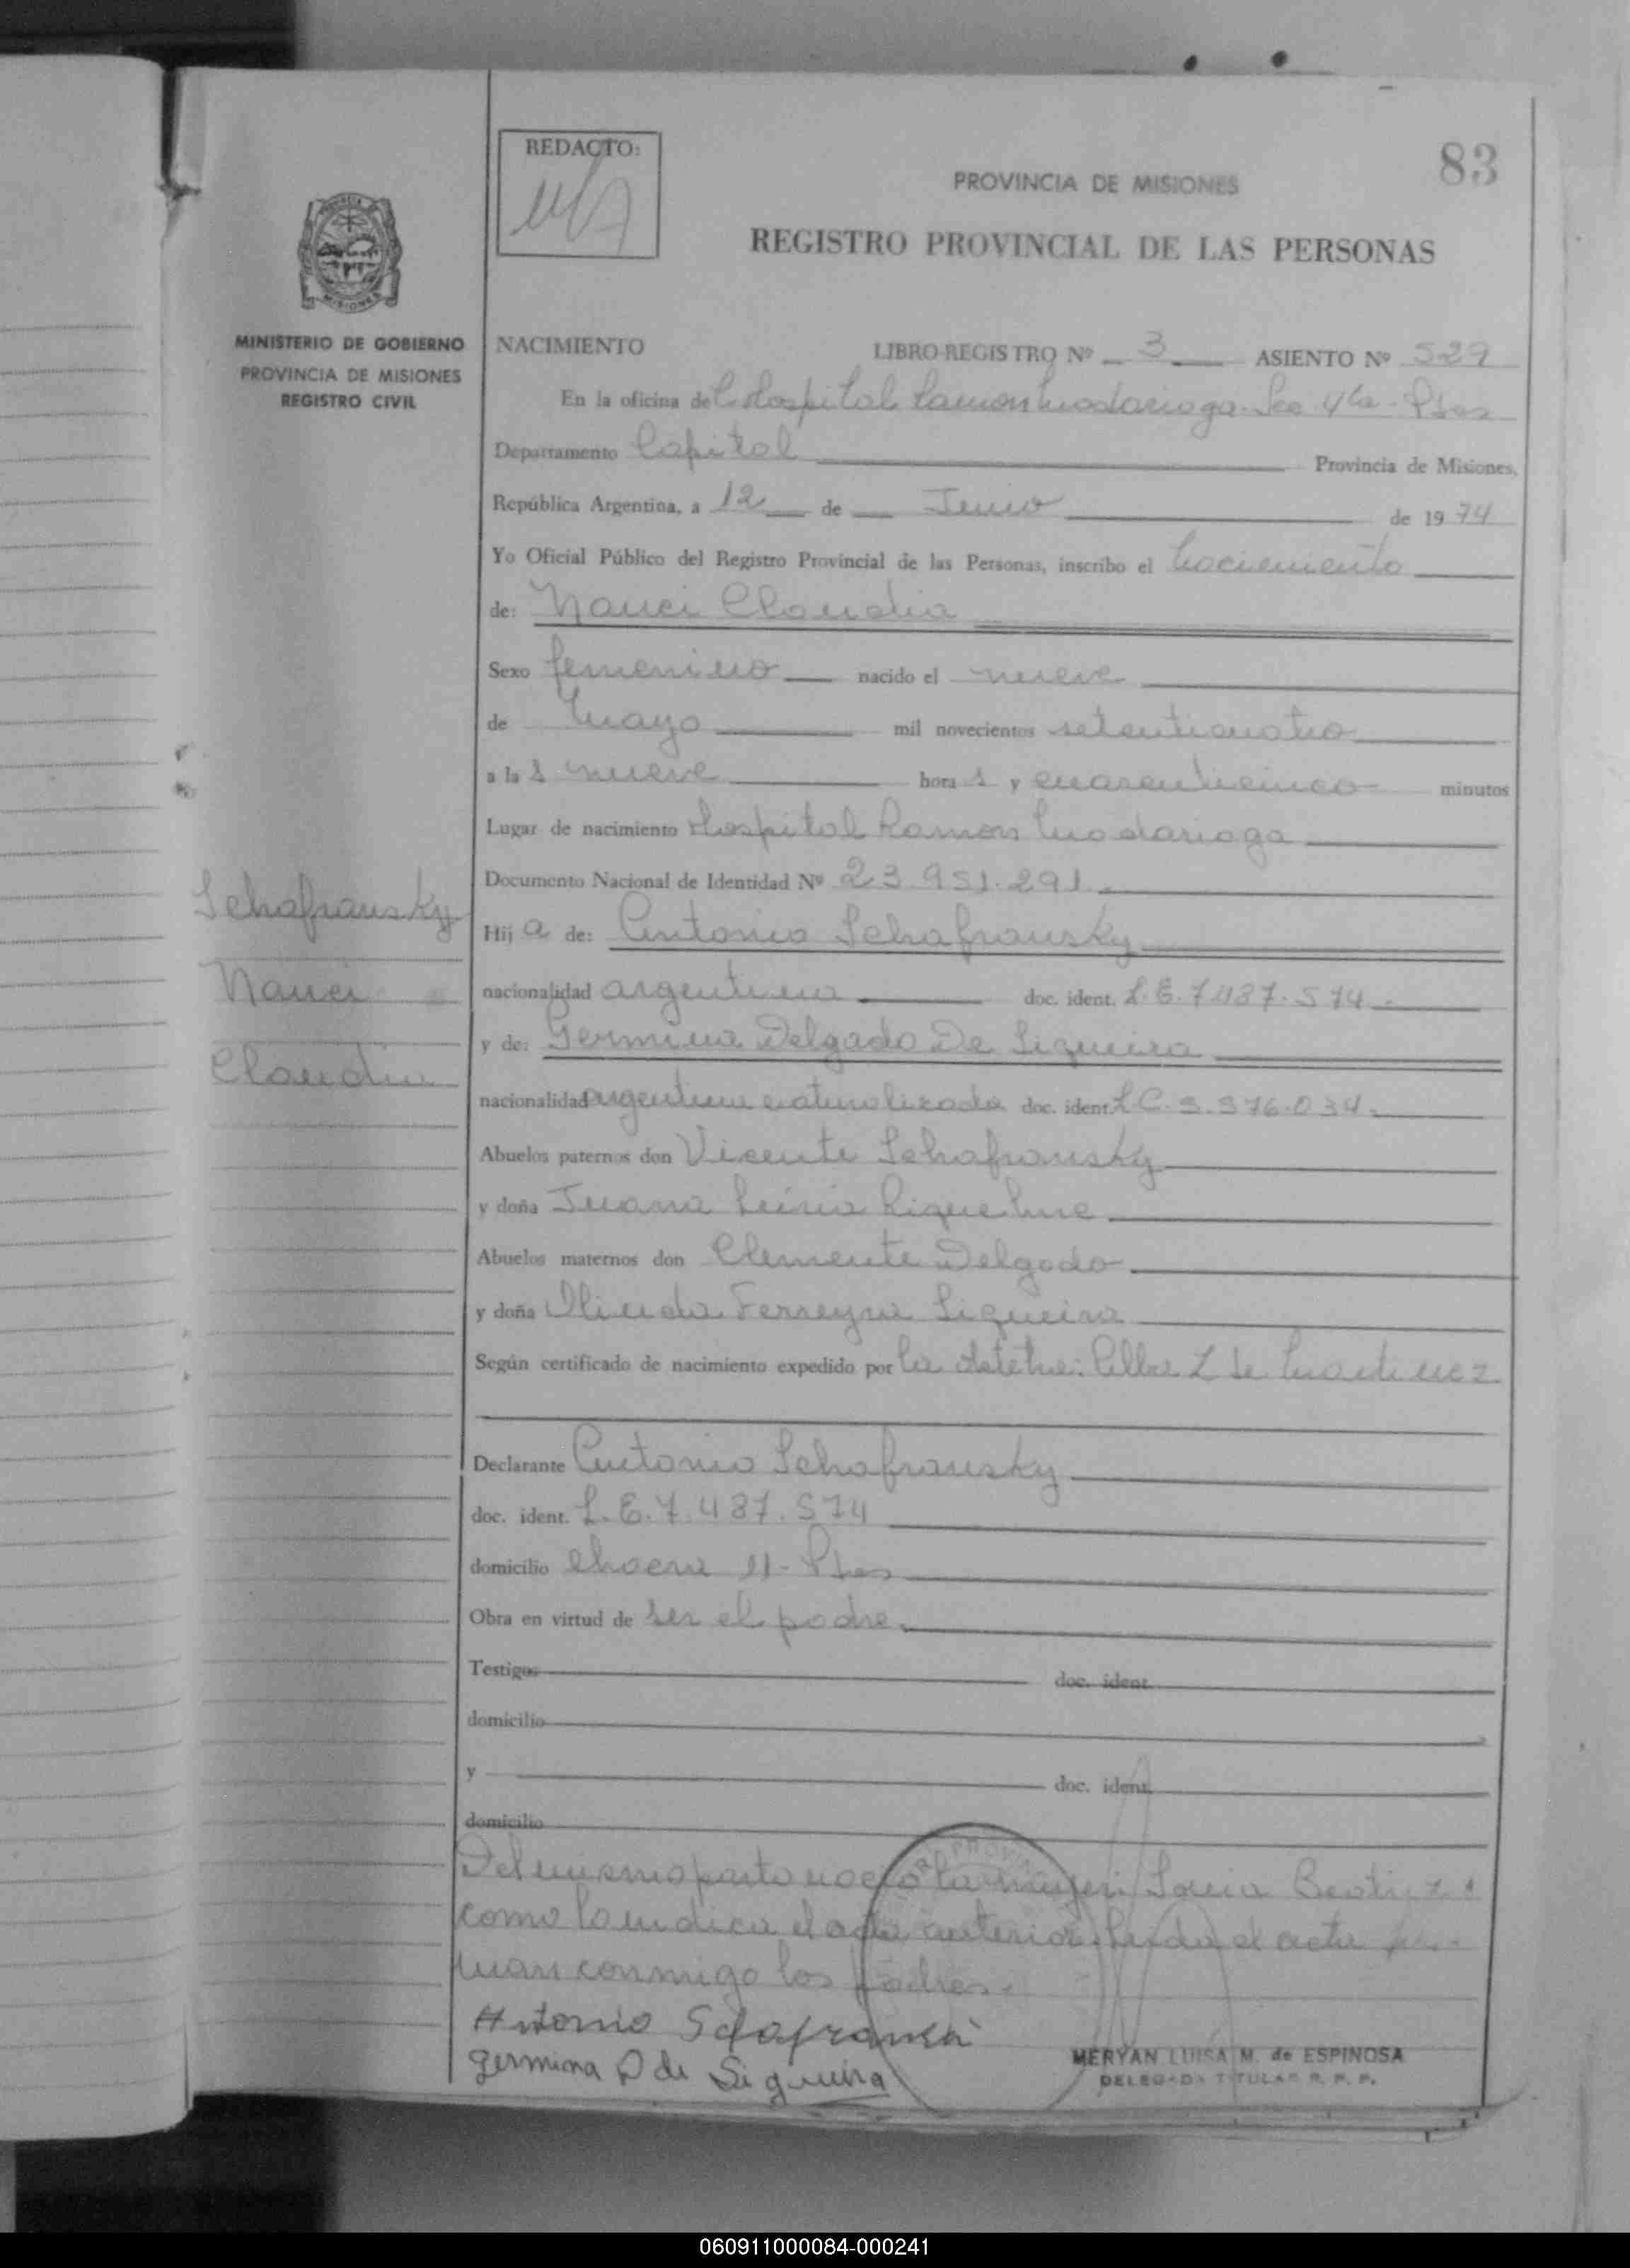 REDACTO:
83
PROVINCIA DE MISIONES
REGISTRO PROVINCIAL DE LAS PERSONAS
MINISTERIO DE GOBIERNO
PROVINCIA DE MISIONES
REGISTRO CIVIL
NACIMIENTO LIBRO-REGISTRO Nº 3 ASIENTO Nº 529
En la oficina del Hospital Ramon Madariaga. Sec 4ta - Pdas
Departamento Capital Provincia de Misiones,
República Argentina, a 12 de Junio de 1974
Yo Oficial Público del Registro Provincial de las Personas, inscribo el nacimiento
de: Nanci Claudia
Sexo femenino nacido el nueve
de Mayo mil novecientos setenticuatro
a las nueve horas y cuarenticinco minutos
Lugar de nacimiento Hospital Ramon Madariaga
Documento Nacional de Identidad Nº 23.951.291.
Schafransky
Nanci
Claudia
Hija de: Antonio Schafransky
nacionalidad argentina doc. ident. L.E. 7.487.574.-
y de: Germina Delgado De Siqueira
nacionalidad argentina naturalizada doc. ident. L.C. 5.576.034.
Abuelos paternos don Vicente Schafransky
y doña Juana Riquelme
Abuelos maternos don Clemente Delgado
y doña Olinda Ferreyra Siqueira
Según certificado de nacimiento expedido por la Obstetra: L de Martinez
Declarante Antonio Schafransky
doc. ident. L.E. 7.487.574
domicilio chacra 11 - Pdas
Obra en virtud de ser el padre.
Testigos doc. ident.
domicilio
y doc. ident.
domicilio
Del mismo parto nació la mujer: Sonia Beatriz
como lo indica el acta anterior. Leida el acta fir-
man conmigo los padres.
Antonio Schafranski
germina D de Siqueira
MERYAN LUISA M. de ESPINOSA
DELEGADA TITULAR R. P. P.
060911000084-000241